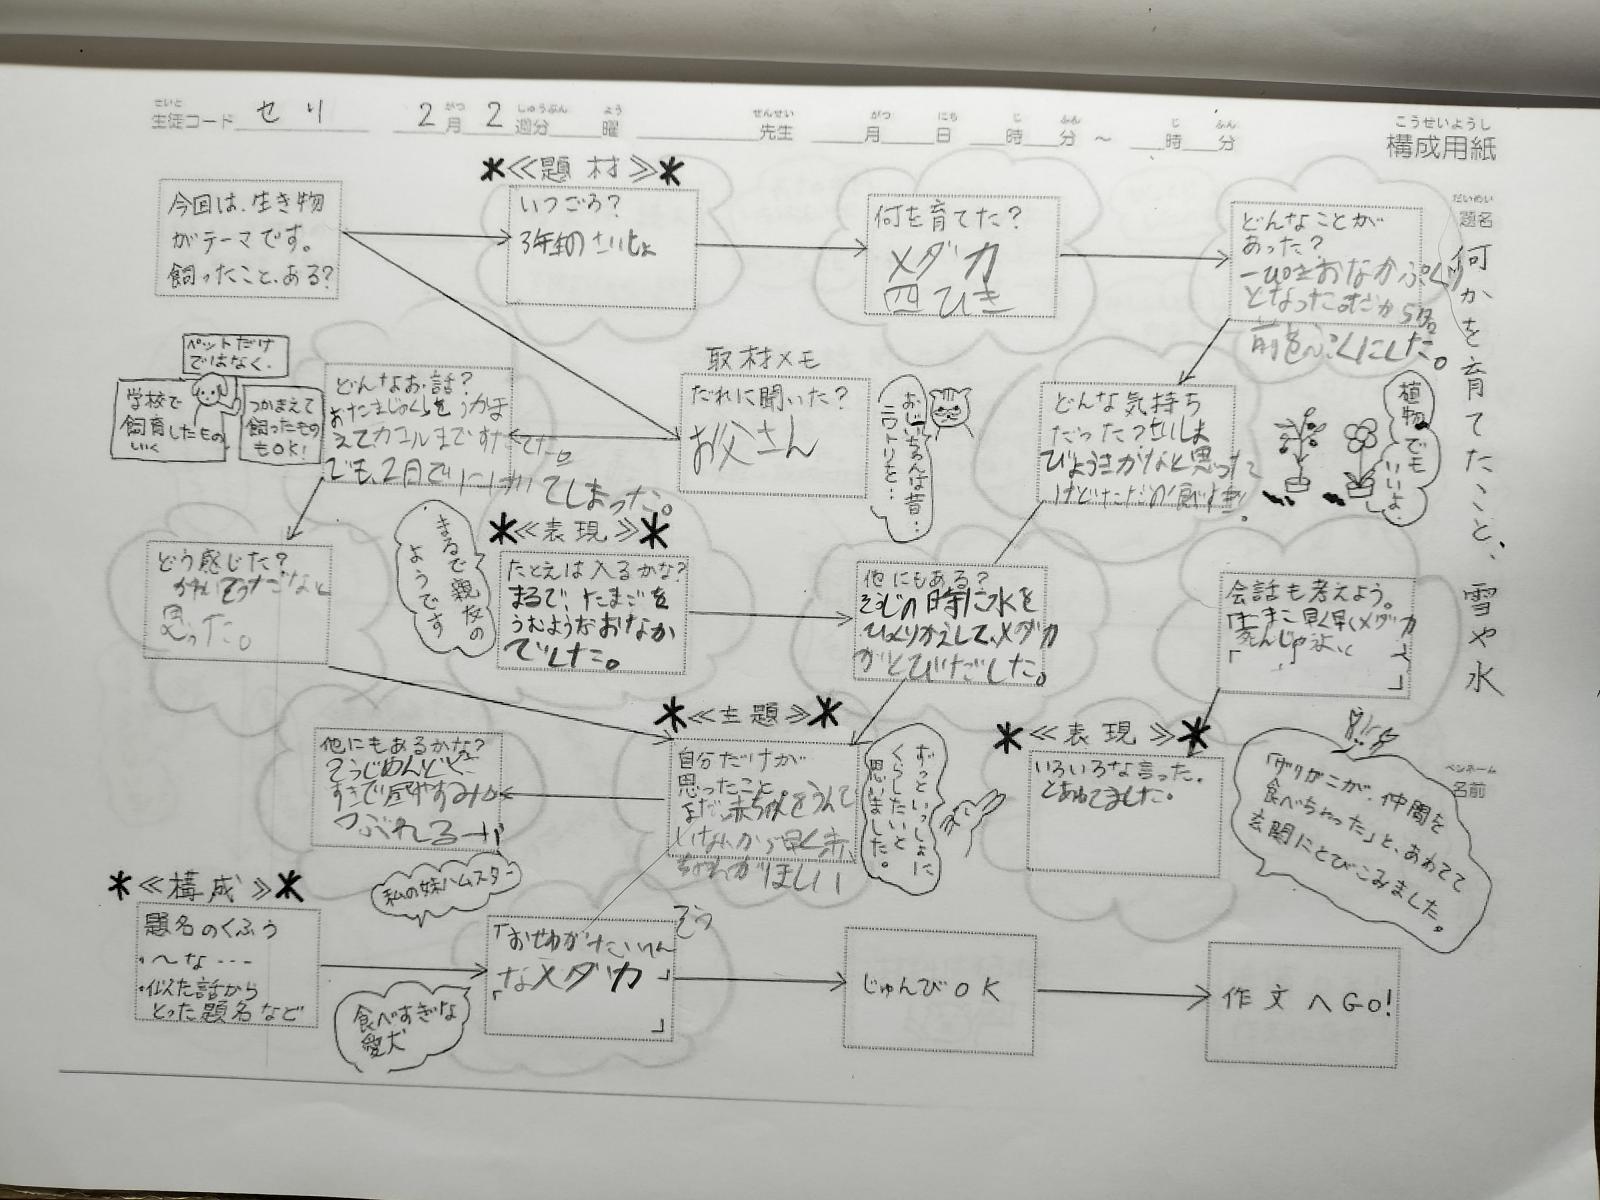 せいと
生徒コード セリ 2月2週分 曜 先生 月 日 時 分 ～ 時 分
がつ しゅうぶん よう せんせい がつ にち じ ふん じ ふん
こうせいようし
構成用紙
だいめい
題名
何かを育てたこと、雪や水
ペンネーム
名前
今回は、生き物
がテーマです。
飼ったこと、ある?
≪題材≫
いつごろ?
3年生のさいしょ
何を育てた?
メダカ
四ひき
どんなことが
あった?
一ぴきおなかぷくり
となった。だから
ペットだけ
ではなく、
学校で
飼育したもの
つかまえて
飼ったもの
もOK!
どんなお話?
でも、2日でにげ
てしまった。
取材メモ
だれに聞いた?
お父さん
おじいちゃんは昔…
ニワトリを…
どんな気持ち
だった?
びょうきかなと思った
植物でも
いいよ。
どう感じた?
思った。
まるで親友の
ようです
≪表現≫
たとえは入るかな?
まるで、たまごを
うむようなおなか
でした。
他にもある?
そうじの時に水を
ひっくりかえして、メダカ
がとびだした。
会話も考えよう。
早く早くメダカ
死んじゃう
「
」
≪主題≫
自分だけが
思ったこと
まだ、赤ちゃんをうんで
いないから早く赤
ちゃんがほしい
ずっといっしょに
くらしたいと
思いました。
他にもあるかな?
そうじめんどくさ
つぶれる
≪表現≫
いろいろな言った。
とあわてました。
「ザリガニが、仲間を
食べちゃった」と、あわてて
玄関にとびこみました。
≪構成≫
題名のくふう
・～な…
・似た話から
とった題名など
私の妹ハムスター
食べすぎな
愛犬
「おせわがたいへん
そう
なメダカ」
「
」
じゅんびOK
作文へGO!